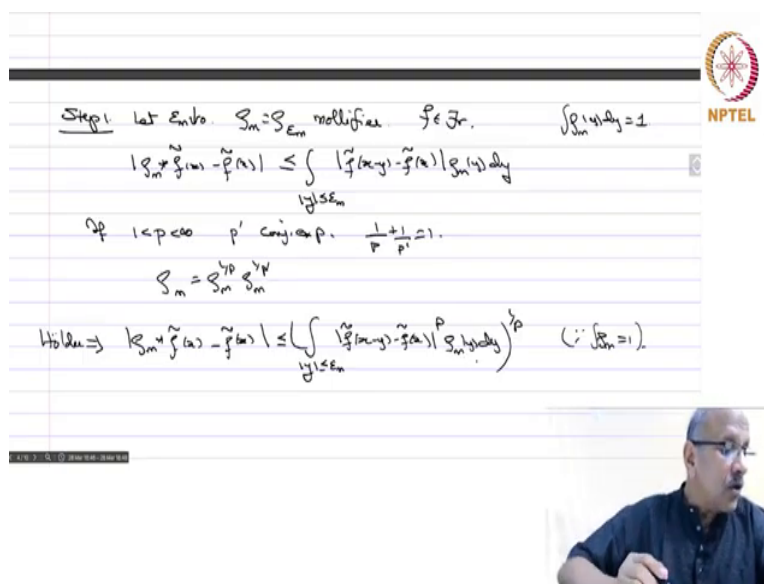 Step 1. Let εₘ↓0. ρₘ = ρ_{εₘ} mollifier. f ∈ ℱ. ∫ρₘ(y)dy = 1.
|ρₘ * f̃(x) - f̃(x)| ≤ ∫_{|y|≤εₘ} |f̃(x-y) - f̃(x)| ρₘ(y)dy
If 1<p<∞ p' conj. exp. 1/p + 1/p' = 1.
ρₘ = ρₘ^{1/p} ρₘ^{1/p'}
Hölder ⇒ |ρₘ * f̃(x) - f̃(x)| ≤ (∫_{|y|≤εₘ} |f̃(x-y) - f̃(x)|^p ρₘ(y)dy)^{1/p} (∵ ∫ρₘ = 1).
NPTEL